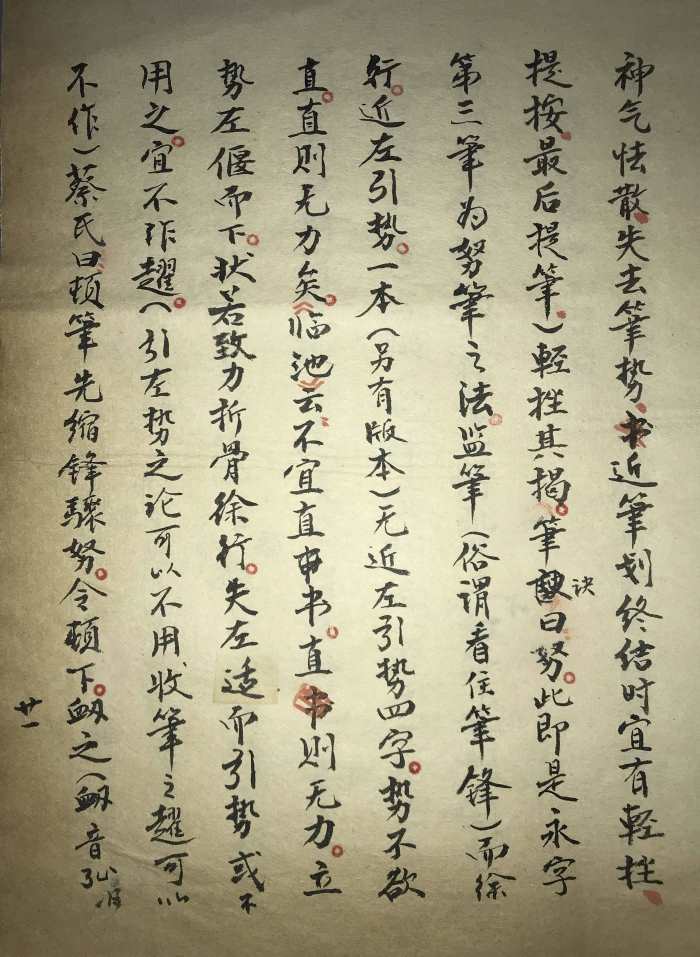 神气怯散失去筆势书近筆划终结时宜有輕挫
提按最后提筆）輕挫其揭。筆诀曰努。此即是永字
第三筆为努筆之法。监筆（俗谓看住筆锋）而徐
行。近左引势。一本（另有版本）无近左引势四字。势不欲
直。直则无力矣。《临池》云不宜直书。直则无力。立
势左偃而下。状若致力折骨徐行。失左适而引势或不
用之。宜不作趯。（引左势之论可以不用收筆之趯可以
不作）蔡氏曰頓筆先缩锋驟努。令頓下。衂之（衂音
廿一